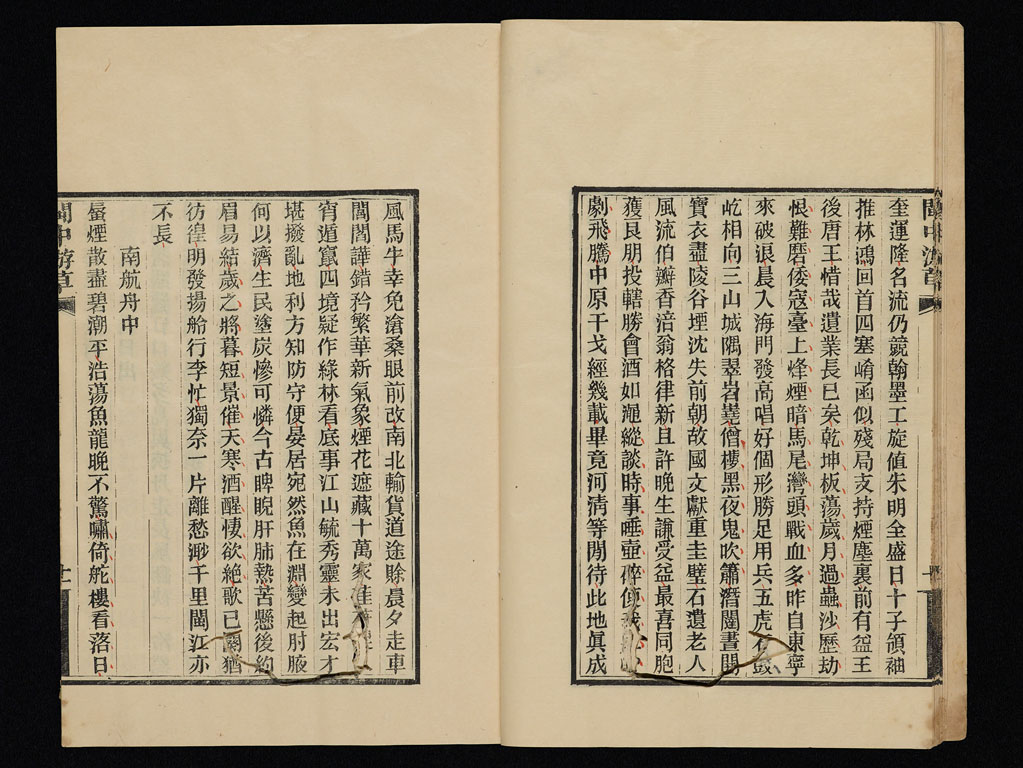 奎運隆名流仍競翰墨工旋值朱明全盛日十子領袖
推林鴻回首四塞崤函似殘局支持煙塵裏前有益王
後唐王惜哉遺業長已矣乾坤板蕩歲月過蟲沙歷劫
恨難磨倭寇臺上烽煙暗馬尾灣頭戰血多昨自東寧
來破浪晨入海門發高唱好個形勝足用兵五虎石鼓
屹相向三山城隅翠岩嶤僧樓黑夜鬼吹簫潛闥晝閉
寶衣盡陵谷堙沈失前朝故國文獻重圭璧石遺老人
風流伯瓣香涪翁格律新且許晚生謙受益最喜同胞
獲良朋投轄勝會酒如澠縱談時事唾壺碎
劇飛騰中原干戈經幾載畢竟河清等閒待此地真成
閩中游草
風馬牛幸免滄桑眼前改南北輸貨道途賒晨夕走車
閩中游草
十一
閭閻譁錯矜繁華新氣象煙花遮藏十萬家
宵遁竄四境疑作綠林看底事江山毓秀靈未出宏才
堪撥亂地利方知防守便晏居宛然魚在淵變起肘腋
何以濟生民塗炭慘可憐今古睥睨肝肺熱苦懸後約
眉易結歲之將暮短景催天寒酒醒悽欲絕歌已闋猶
彷徨明發揚舲行李忙獨奈一片離愁渺千里閩江亦
不長
南航舟中
蜃煙散盡碧潮平浩蕩魚龍晚不驚嘯倚舵樓看落日